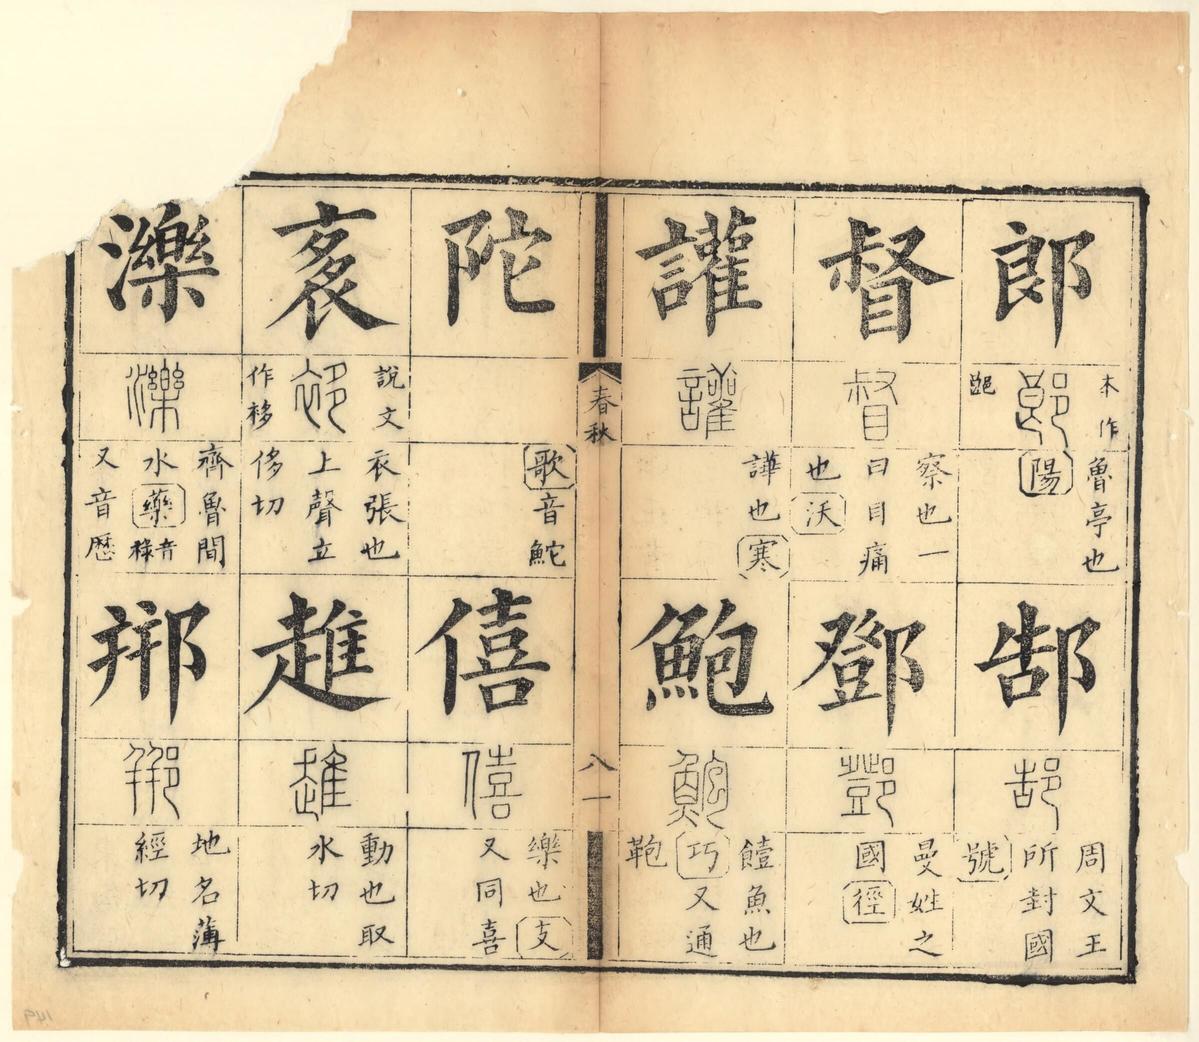 郎
本作
郒
魯亭也
陽
督
察也一
曰目痛
也沃
讙
譁也寒
郜
周文王
所封國
號
鄧
曼姓之
國徑
鮑
饐魚也
巧又通
鞄
春秋
八一
陀
歌音鮀
袲
說文
作袳
衣張也
上聲立
侈切
濼
齊魯間
水藥音祿
又音歷
僖
樂也支
又同喜
趡
動也取
水切
郱
地名薄
經切